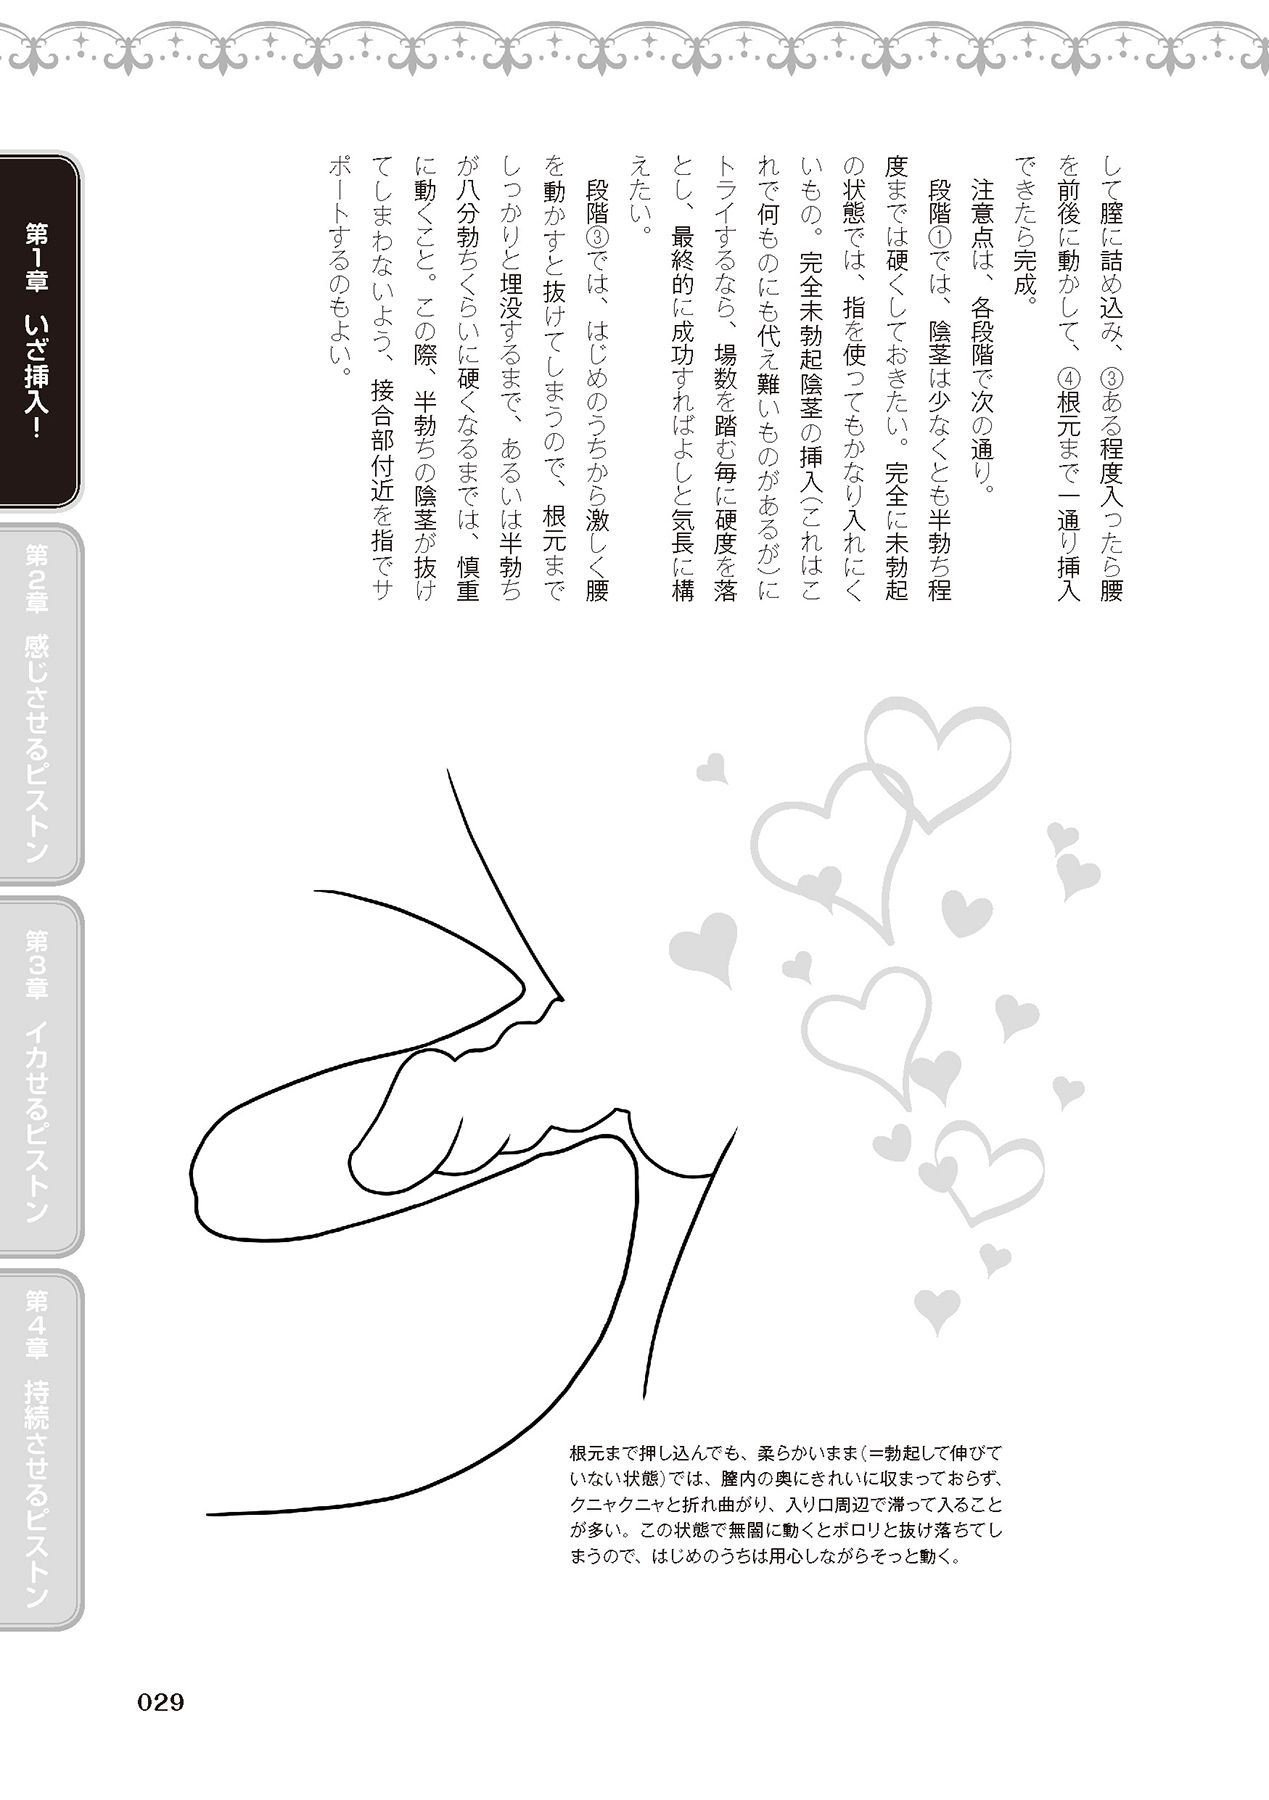 して膣に詰め込み、③ある程度入ったら腰
を前後に動かして、④根元まで一通り挿入
できたら完成。
注意点は、各段階で次の通り。
段階①では、陰茎は少なくとも半勃ち程
度までは硬くしておきたい。完全に未勃起
の状態では、指を使ってもかなり入れにく
いもの。完全未勃起陰茎の挿入（これはこ
れで何ものにも代え難いものがあるが）に
トライするなら、場数を踏む毎に硬度を落
とし、最終的に成功すればよしと気長に構
えたい。
段階③では、はじめのうちから激しく腰
を動かすと抜けてしまうので、根元まで
しっかりと埋没するまで、あるいは半勃ち
が八分勃ちくらいに硬くなるまでは、慎重
に動くこと。この際、半勃ちの陰茎が抜け
てしまわないよう、接合部付近を指でサ
ポートするのもよい。
根元まで押し込んでも、柔らかいまま（＝勃起して伸びて
いない状態）では、膣内の奥にきれいに収まっておらず、
クニャクニャと折れ曲がり、入り口周辺で滞って入ること
が多い。この状態で無闇に動くとポロリと抜け落ちてし
まうので、はじめのうちは用心しながらそっと動く。
第1章 いざ挿入！
第2章 感じさせるピストン
第3章 イカせるピストン
第4章 持続させるピストン
029